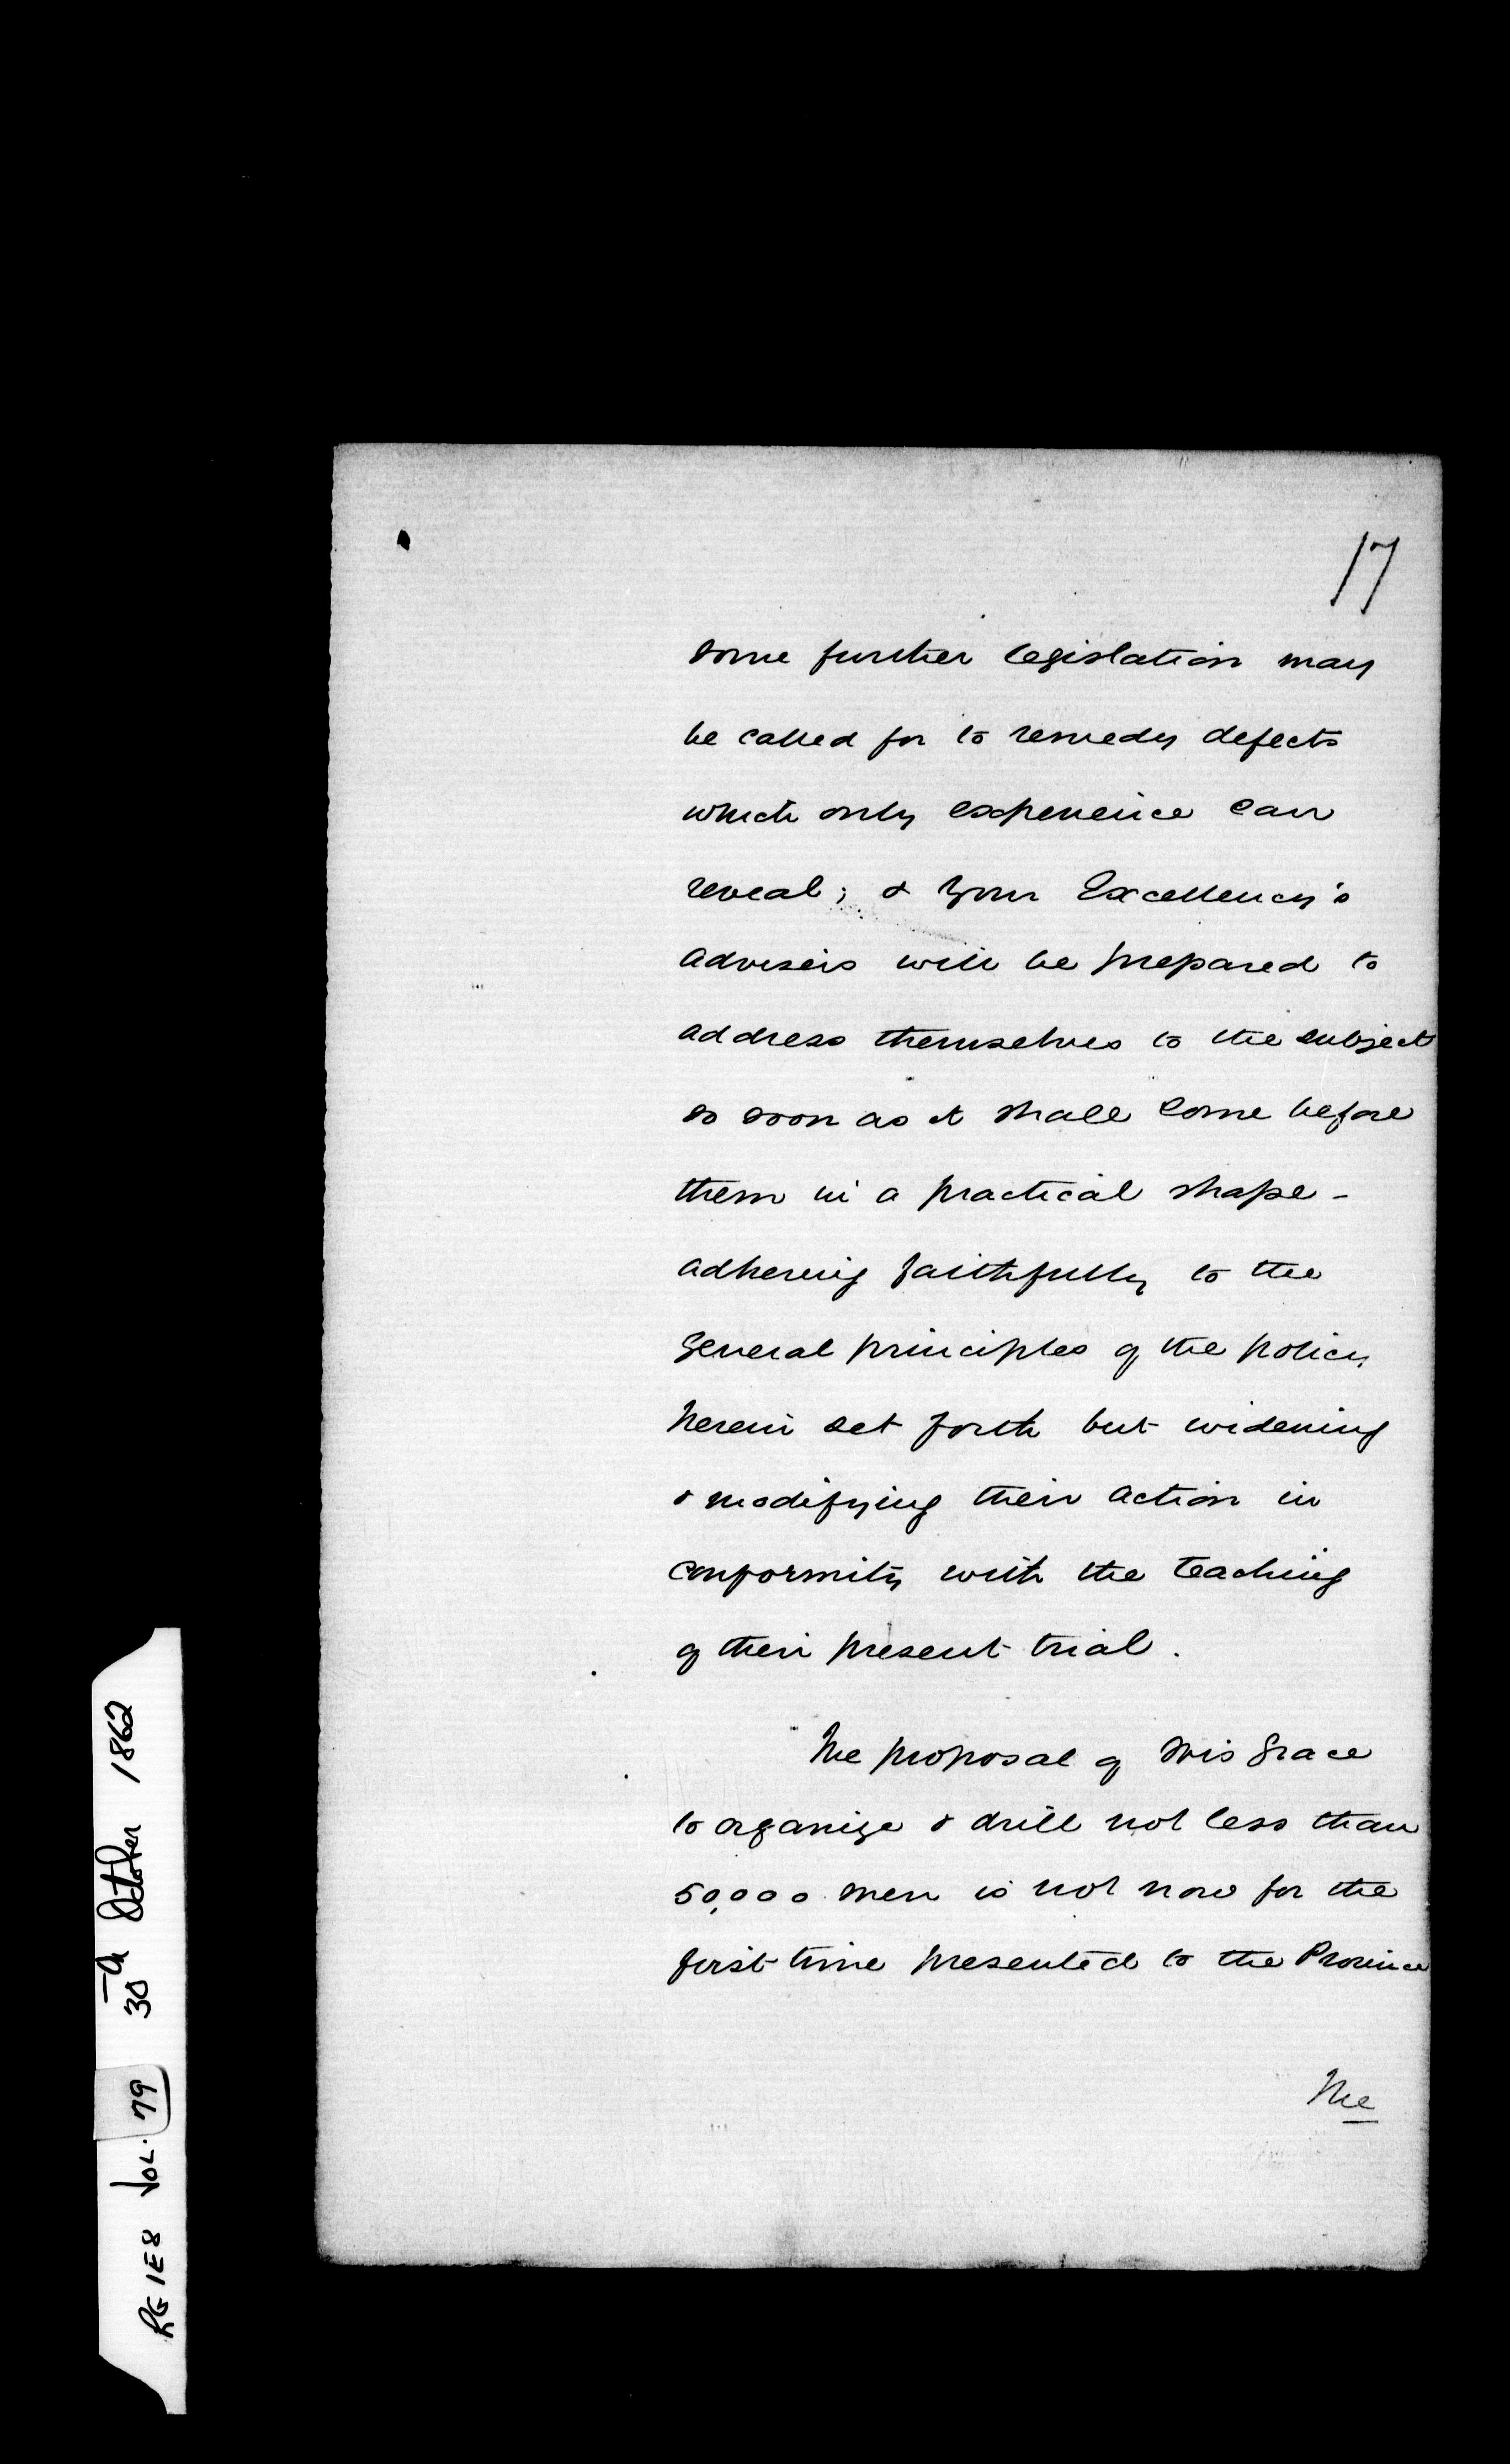 17
some further legislation may
be called for to remedy defects
which only experience can
reveal; & Your Excellency's
advisers will be prepared to
address themselves to the subject
so soon as it shall come before
them in a practical shape -
adhering faithfully to the
general principles of the policy
herein set forth but widening
& modifying their action in
conformity with the teaching
of their present trial.
The proposal of His Grace
to organize & drill not less than
50,000 men is not now for the
first time presented to the Province
The
RG 1E8 VOL. 79 30th October 1862